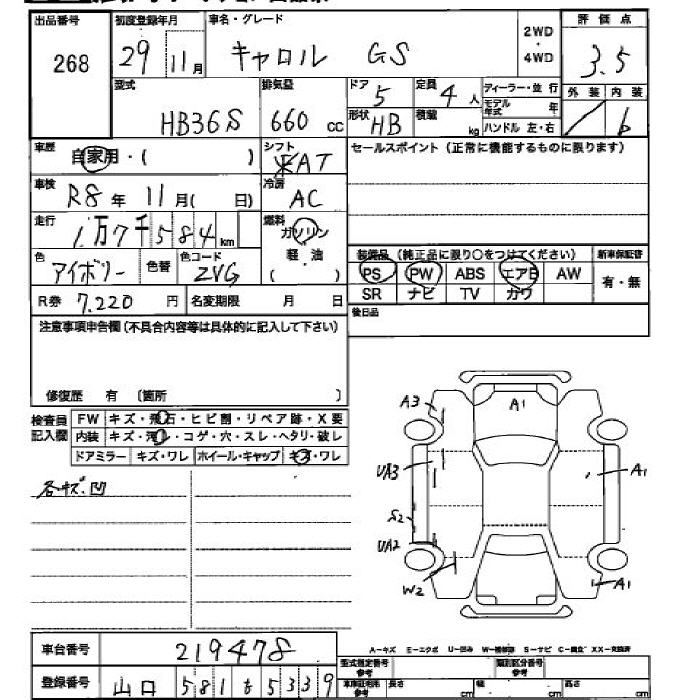 出品番号 初度登録年月 車名・グレード 2WD・4WD 評価点
268 29年11月 キャロル GS 3.5
型式 排気量 ドア 定員 ディーラー・並行 外装 内装
HB36S 660cc 5 4人 モデル年式 年 / b
形状 HB 積載 kg ハンドル 左・右
車歴 自家用・( ) シフト AT セールスポイント(正常に機能するものに限ります)
車検 R8年11月( 日) 冷房 AC
走行 1万7千584km 燃料 ガソリン 軽・油 ( )
色 アイボリー 色替 色コード ZVG
装備品(純正品に限り〇をつけてください) 新車保証書
PS PW ABS エアB AW 有・無
SR ナビ TV カワ
R券 7,220円 名変期限 月 日 後日品
注意事項申告欄(不具合内容等は具体的に記入して下さい)
修復歴 有 〔箇所 〕
検査員記入欄 FW キズ・飛石・ヒビ割・リペア跡・X要
内装 キズ・汚レ・コゲ・穴・スレ・ヘタリ・破レ
ドアミラー キズ・ワレ ホイール・キャップ キズ・ワレ
各キズ.凹
A3 A1
UA3 A1
S2
UA2
W2 A1
A-キズ E-エクボ U-凹み W-補修跡 S-サビ C-腐食 XX-交換済
車台番号 219478
登録番号 山口 581 も 5339
型式指定番号 参考 類別区分番号 参考
車庫証明用 参考 長さ cm 幅 cm 高さ cm